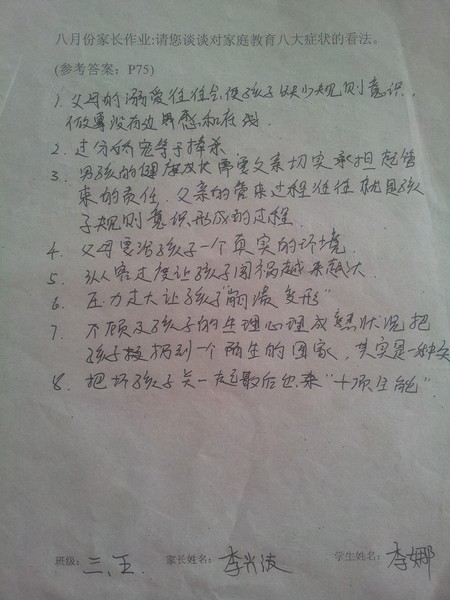 八月份家长作业:请您谈谈对家庭教育八大症状的看法。
(参考答案：P75)
1. 父母的溺爱往往会使孩子缺少规则意识，
做事没有边界感和
2. 过分娇宠等于捧杀
3. 男孩的健康成长需要父亲切实承担起管
束的责任，父亲的管束过程往往就是孩
子规则意识形成的过程。
4. 父母要给孩子一个真实的环境
5. 认宽过度让孩子闯祸越来越大
6. 压力过大让孩子"崩溃变形"
7. 不顾及孩子的生理心理成熟状况把
孩子投掷到一个陌生的国家，其实是一种
8. 把坏孩子关一起最后也来"十项全能"
班级: 三、五 家长姓名: 李兴波 学生姓名: 李娜